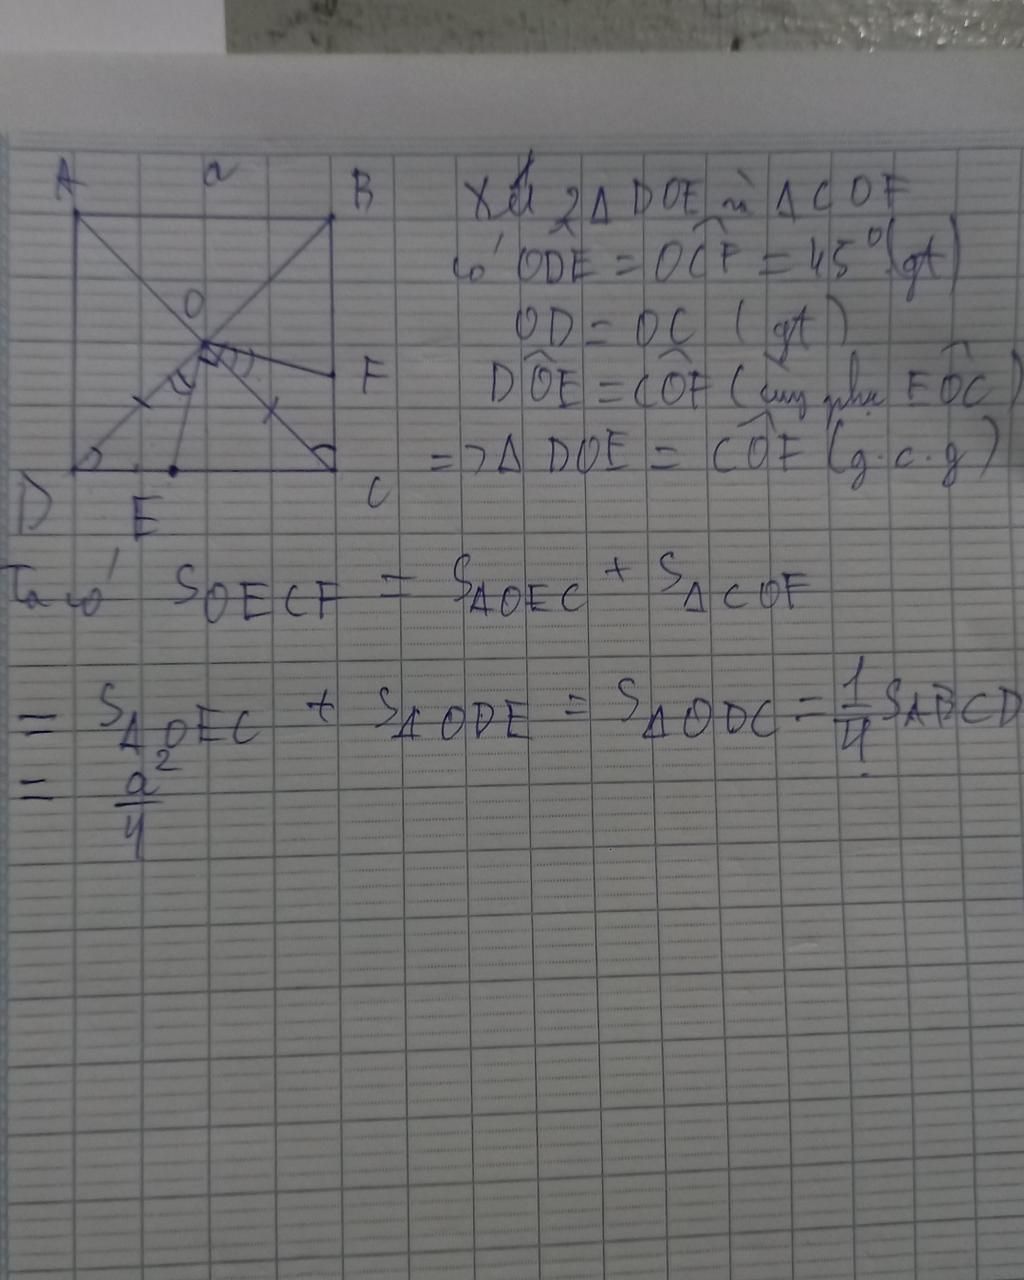 A a B
O
F
D E C
Xét 2 Δ DOE và Δ COF
có ODE = OCF = 45° (gt)
OD = OC (gt)
DOE = COF (cùng phụ EOC)
=> Δ DOE = COF (g.c.g)
Ta có S OECF = SΔOEC + SΔCOF
= SΔOEC + SΔODE = SΔODC = 1/4 SABCD
= a²/4